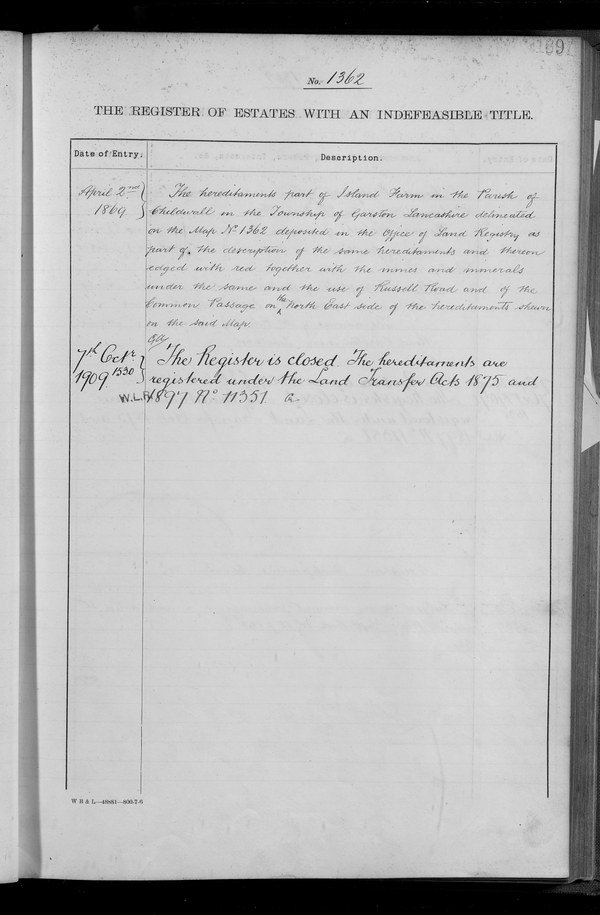 No. 1362
THE REGISTER OF ESTATES WITH AN INDEFEASIBLE TITLE.
Date of Entry. Description.
April 2nd The hereditaments part of Island Farm in the Parish of
1869 Childwall in the Township of Garston Lancashire delineated
on the Map No 1362 deposited in the Office of Land Registry as
part of the description of the same hereditaments and thereon
edged with red together with the mines and minerals
under the same and the use of Russell Road and of the
Common Passage on the North East side of the hereditaments shewn
on the said Map.
7th Octr The Register is closed. The hereditaments are
1909 1530 registered under the Land Transfer Acts 1875 and
W.L.R. 1897 No 11351
W B & L—48981—800-7-6